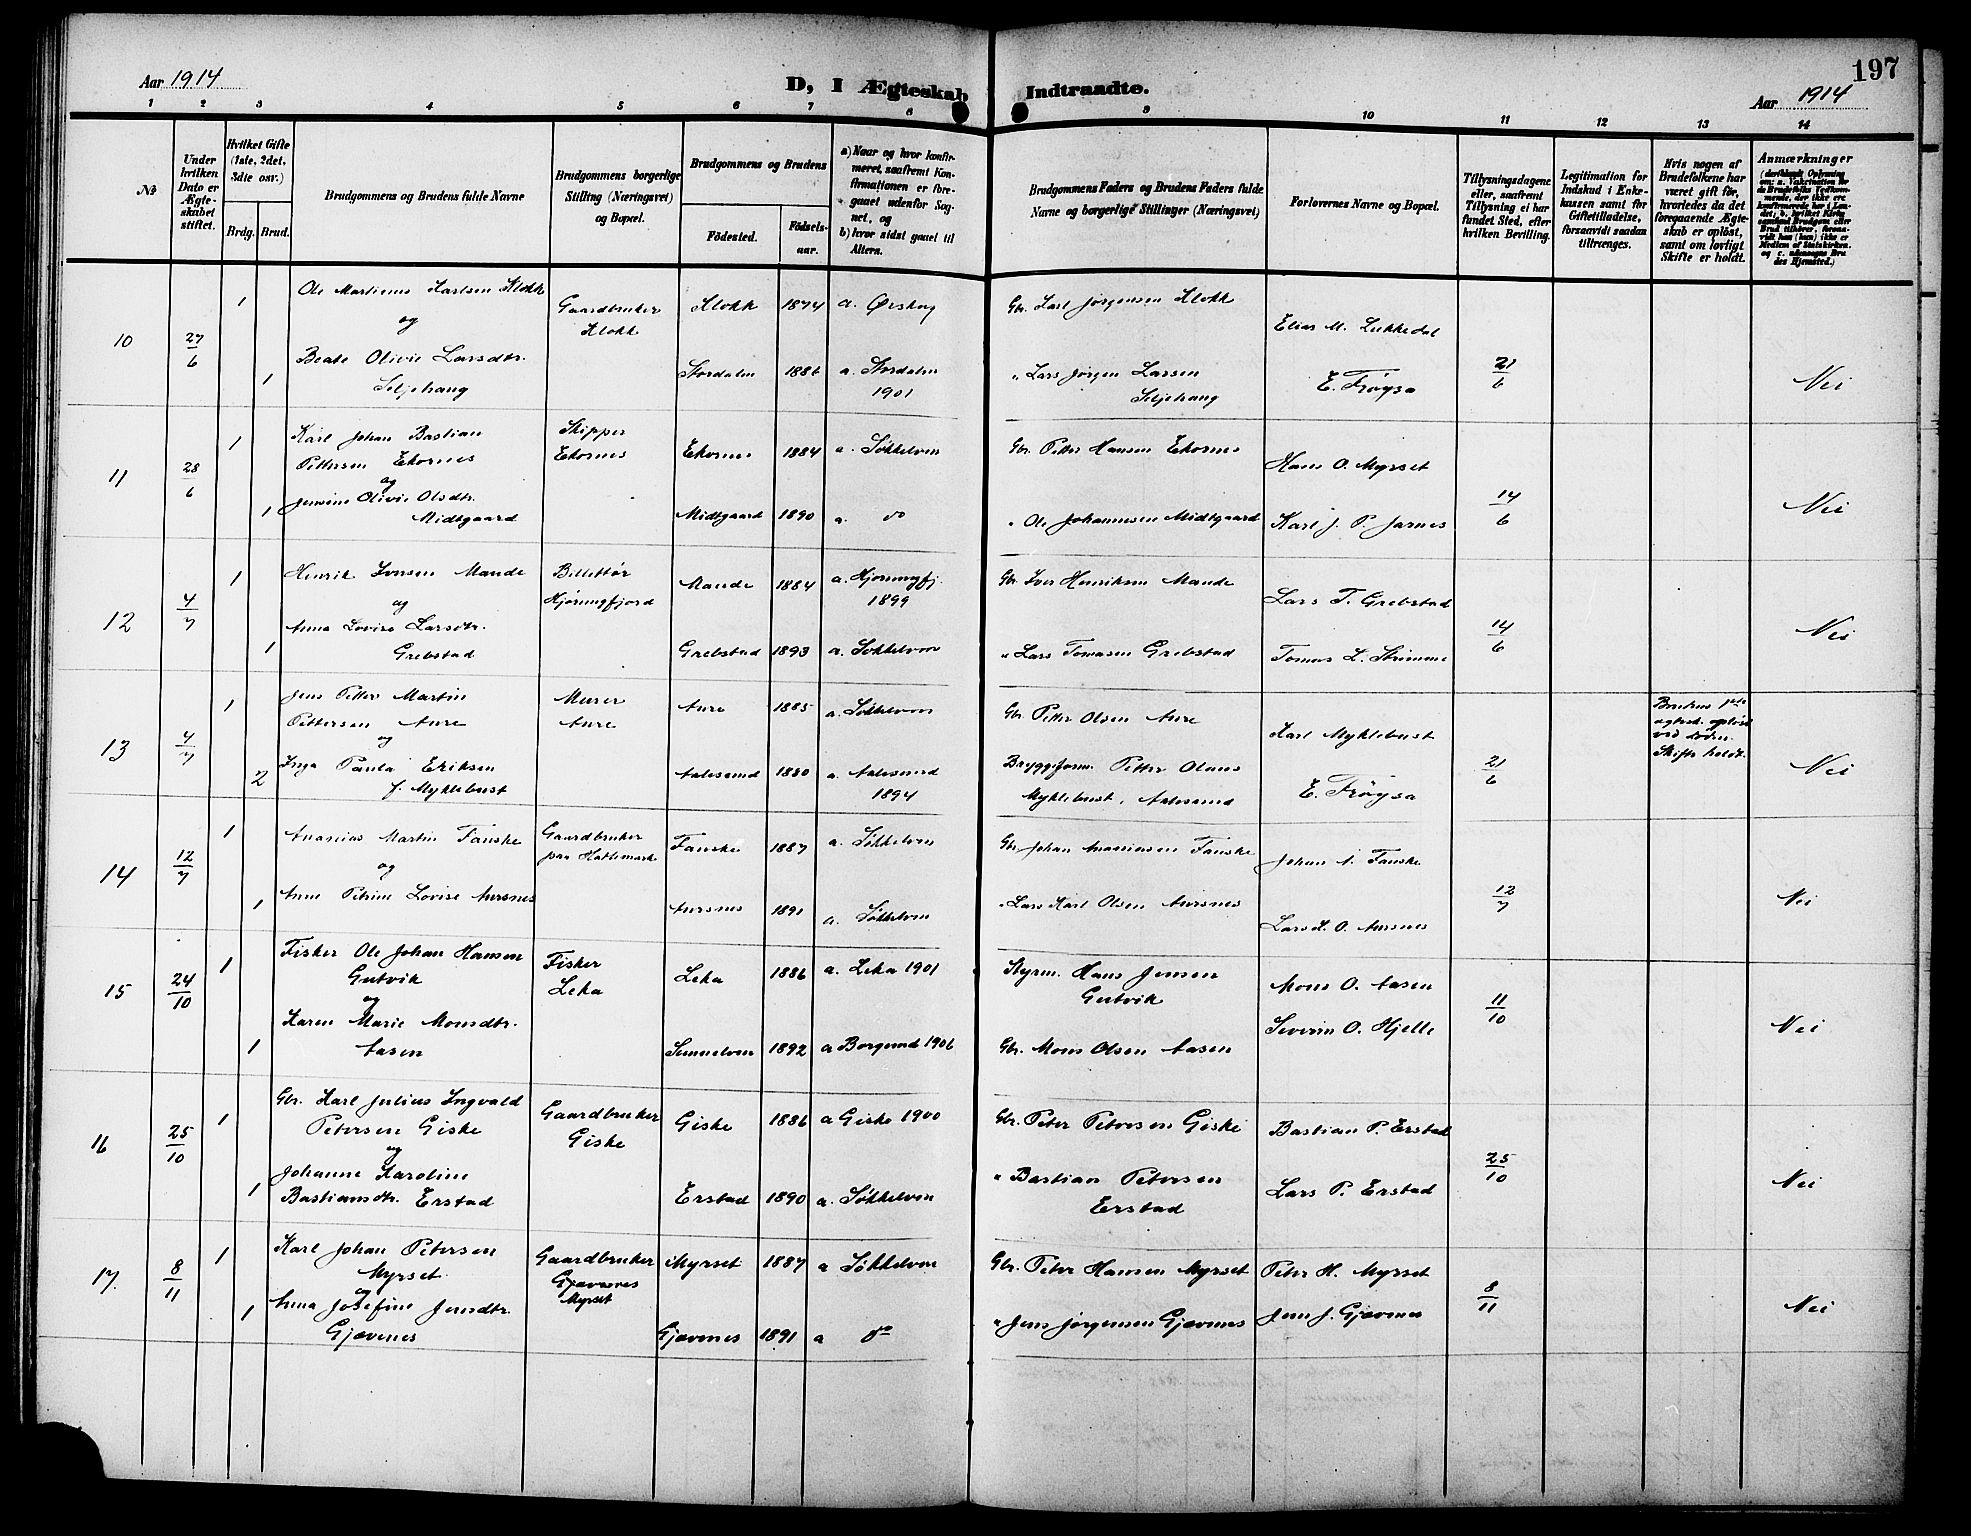 Aar 1914
D, I Ægteskab Indtraadte.
197
Aar 1914
1 2 3 4 5 6 7 8 9 10 11 12 13 14
No
Under hvilken Dato er Ægteskabet stiftet.
Hvilket Gifte (1ste, 2det, 3die osv.)
Brdg. Brud.
Brudgommens og Brudens fulde Navne
Brudgommens borgerlige Stilling (Næringsvei) og Bopæl.
Brudgommens og Brudens
Fødested.
Fødselsaar.
a) Naar og hvor konfirmeret, saafremt Konfirmationen er foregaaet udenfor Sognet, og
b) hvor sidst gaaet til Alters.
Brudgommens Faders og Brudens Faders fulde Navne og borgerlige Stillinger (Næringsvei)
Forlovernes Navne og Bopæl.
Tillysningsdagene eller, saafremt Tillysning ei har fundet Sted, efter hvilken Bevilling.
Legitimation for Indskud i Enkekassen samt for Giftetilladelse, forsaavidt saadan tiltrænges.
Hvis nogen af Brudefolkene har været gift før, hvorledes da det foregaaende Ægteskab er opløst, samt om lovligt Skifte er holdt.
Anmærkninger
10
27/6
1
Ole Martinus Karlsen Klokk
og
Gaardbruker
Klokk
Klokk 1874 a. Ørskog
Gbr. Karl Jørgensen Klokk
Elias M. Lukkedal
1
Beate Olivie Larsdtr.
Seljehaug
Stordalen 1886 a. Stordalen
1901
" Lars Jørgen Larsen
Seljehaug
E. Frøysa
21/6
Nei
11
28/6
1
Karl Johan Bastian
Pettersen Ekornes
og
Skipper
Ekornes
Ekornes 1884 a. Søkkelven
Gbr. Petter Hansen Ekornes
Hans O. Myrset
1
Jensine Olivie Olsdtr.
Midtgaard
Midtgaard 1890 a. do
" Ole Johannesen Midtgaard
Karl J. P. Jarnes
14/6
Nei
12
4/7
1
Henrik Iversen Mande
og
Billettør
Hjørungfjord
Mande 1884 a. Hjørungfj.
1899
Gbr. Iver Henriksen Mande
Lars T. Grebstad
1
Anna Lovise Larsdtr.
Grebstad
Grebstad 1893 a. Søkkelven
" Lars Tomasen Grebstad
Tomas L. Strømme
14/6
Nei
13
4/7
1
Jens Petter Martin
Pettersen Aure
og
Murer
Aure
Aure 1885 a. Søkkelven
Gbr. Petter Olsen Aure
Karl Myklebust
Brudens 1ste
egtesk. opløst
ved døden.
Skifte holdt.
2
Inga Paula Eriksen
f. Myklebust
Aalesund 1880 a. Aalesund
1894
Bryggeform. Petter Olaus
Myklebust, Aalesund
E. Frøysa
21/6
Nei
14
12/7
1
Ananias Martin Fauske
og
Gaardbruker
paa Hattemark
Fauske 1887 a. Søkkelven
Gbr. Johan Ananiasen Fauske
Johan A. Fauske
1
Anne Petrine Lovise Aursnes
Aursnes 1891 a. Søkkelven
" Lars Karl Olsen Aursnes
Lars K. O. Aursnes
12/7
Nei
15
24/10
1
Fisker Ole Johan Hansen
Gutvik
og
Fisker
Leka
Leka 1886 a. Leka 1901
Styrm. Hans Jensen
Gutvik
Mons O. Aasen
1
Karen Marie Monsdtr.
Aasen
Sunnelven 1892 a Borgund 1906
Gbr. Mons Olsen Aasen
Severin O. Hjelle
11/10
Nei
16
25/10
1
Gbr. Karl Julius Ingvald
Petersen Giske
og
Gaardbruker
Giske
Giske 1886 a Giske 1900
Gbr. Peter Petersen Giske
Bastian P. Erstad
1
Johanne Karoline
Bastiansdtr. Erstad
Erstad 1890 a. Søkkelven
" Bastian Petersen
Erstad
Lars P. Erstad
25/10
Nei
17.
8/11
1
Karl Johan Petersen
Myrset
og
Gaardbruker
Gjævenes
Myrset
Myrset 1887 a Søkkelven
Gbr. Peter Hansen Myrset
Peter H. Myrset
1
Anna Josefine Jensdtr.
Gjævenes
Gjævenes 1891 a do
" Jens Jørgensen Gjævenes
Jens J. Gjævenes
8/11
Nei